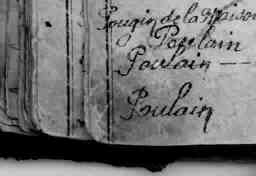 Pougin de la Maison
Poulain
Poulain —
Poulain